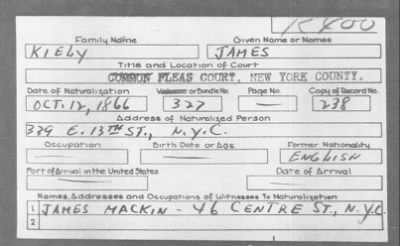 K400
Family Name Given Name or Names
KIELY JAMES
Title and Location of Court
COMMON PLEAS COURT, NEW YORK COUNTY.
Date of Naturalization Volume or Bundle No Page No Copy of Record No
OCT. 12, 1866 327 — 238
Address of Naturalized Person
339 E. 13TH ST., N.Y.C.
Occupation Birth Date or Age Former Nationality
— — ENGLISH
Port of Arrival in the United States Date of Arrival
— —
Names, Addresses and Occupations of Witnesses To Naturalization
1 JAMES MACKIN - 46 CENTRE ST., N.Y.C.
2